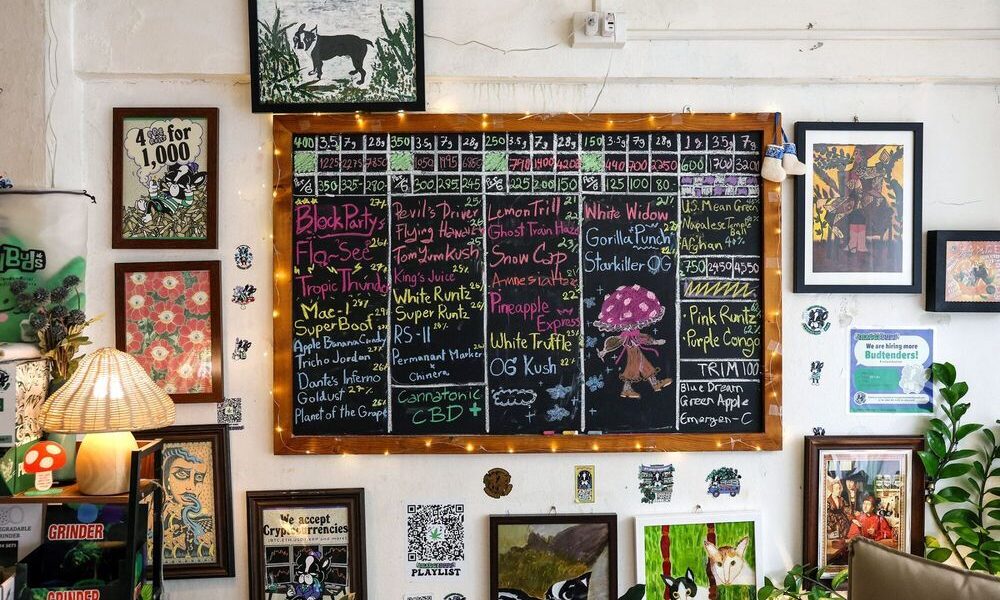 4 for
1,000
400 3.5 7g 28g
350 3.5g 7g 28g
250 3.5g 7g 28g
150 3.5g 7g 28g
1g 3.5g 7g
1225 2275 7850
1050 1995 6850
790 1400 4200
440 700 2250
600 1700 3200
350- 325- 280-
300 295- 245
225 200 150
125 100 80
Block Party
Flo-See
Tropic Thunda
Mac-1
Super Boof
Apple Banana Candy
Tricho Jordan
Dante's Inferno
Goldust
Planet of the Grape
Devil's Driver
Flying
Tom Yum Kush
King's Juice
White Runtz
Super Runtz
RS-11
Permanant Marker
x Chimera
Cannatonic
CBD +
Lemon Trill
Ghost Train Haze
Snow Cap
Amnesia
Pineapple
Express
White Truffle
OG Kush
White Widow
Gorilla Punch
Starkiller OG
U.S. Mean Green
Napalese Temple
Ball
Afghan
750 2450 4550
Pink Runtz
Purple Congo
TRIM 100
Blue Dream
Green Apple
Emergen-C
We are hiring more
Budtenders!
GRINDER
GRINDER
We accept
Cryptocurrencies
PLAYLIST